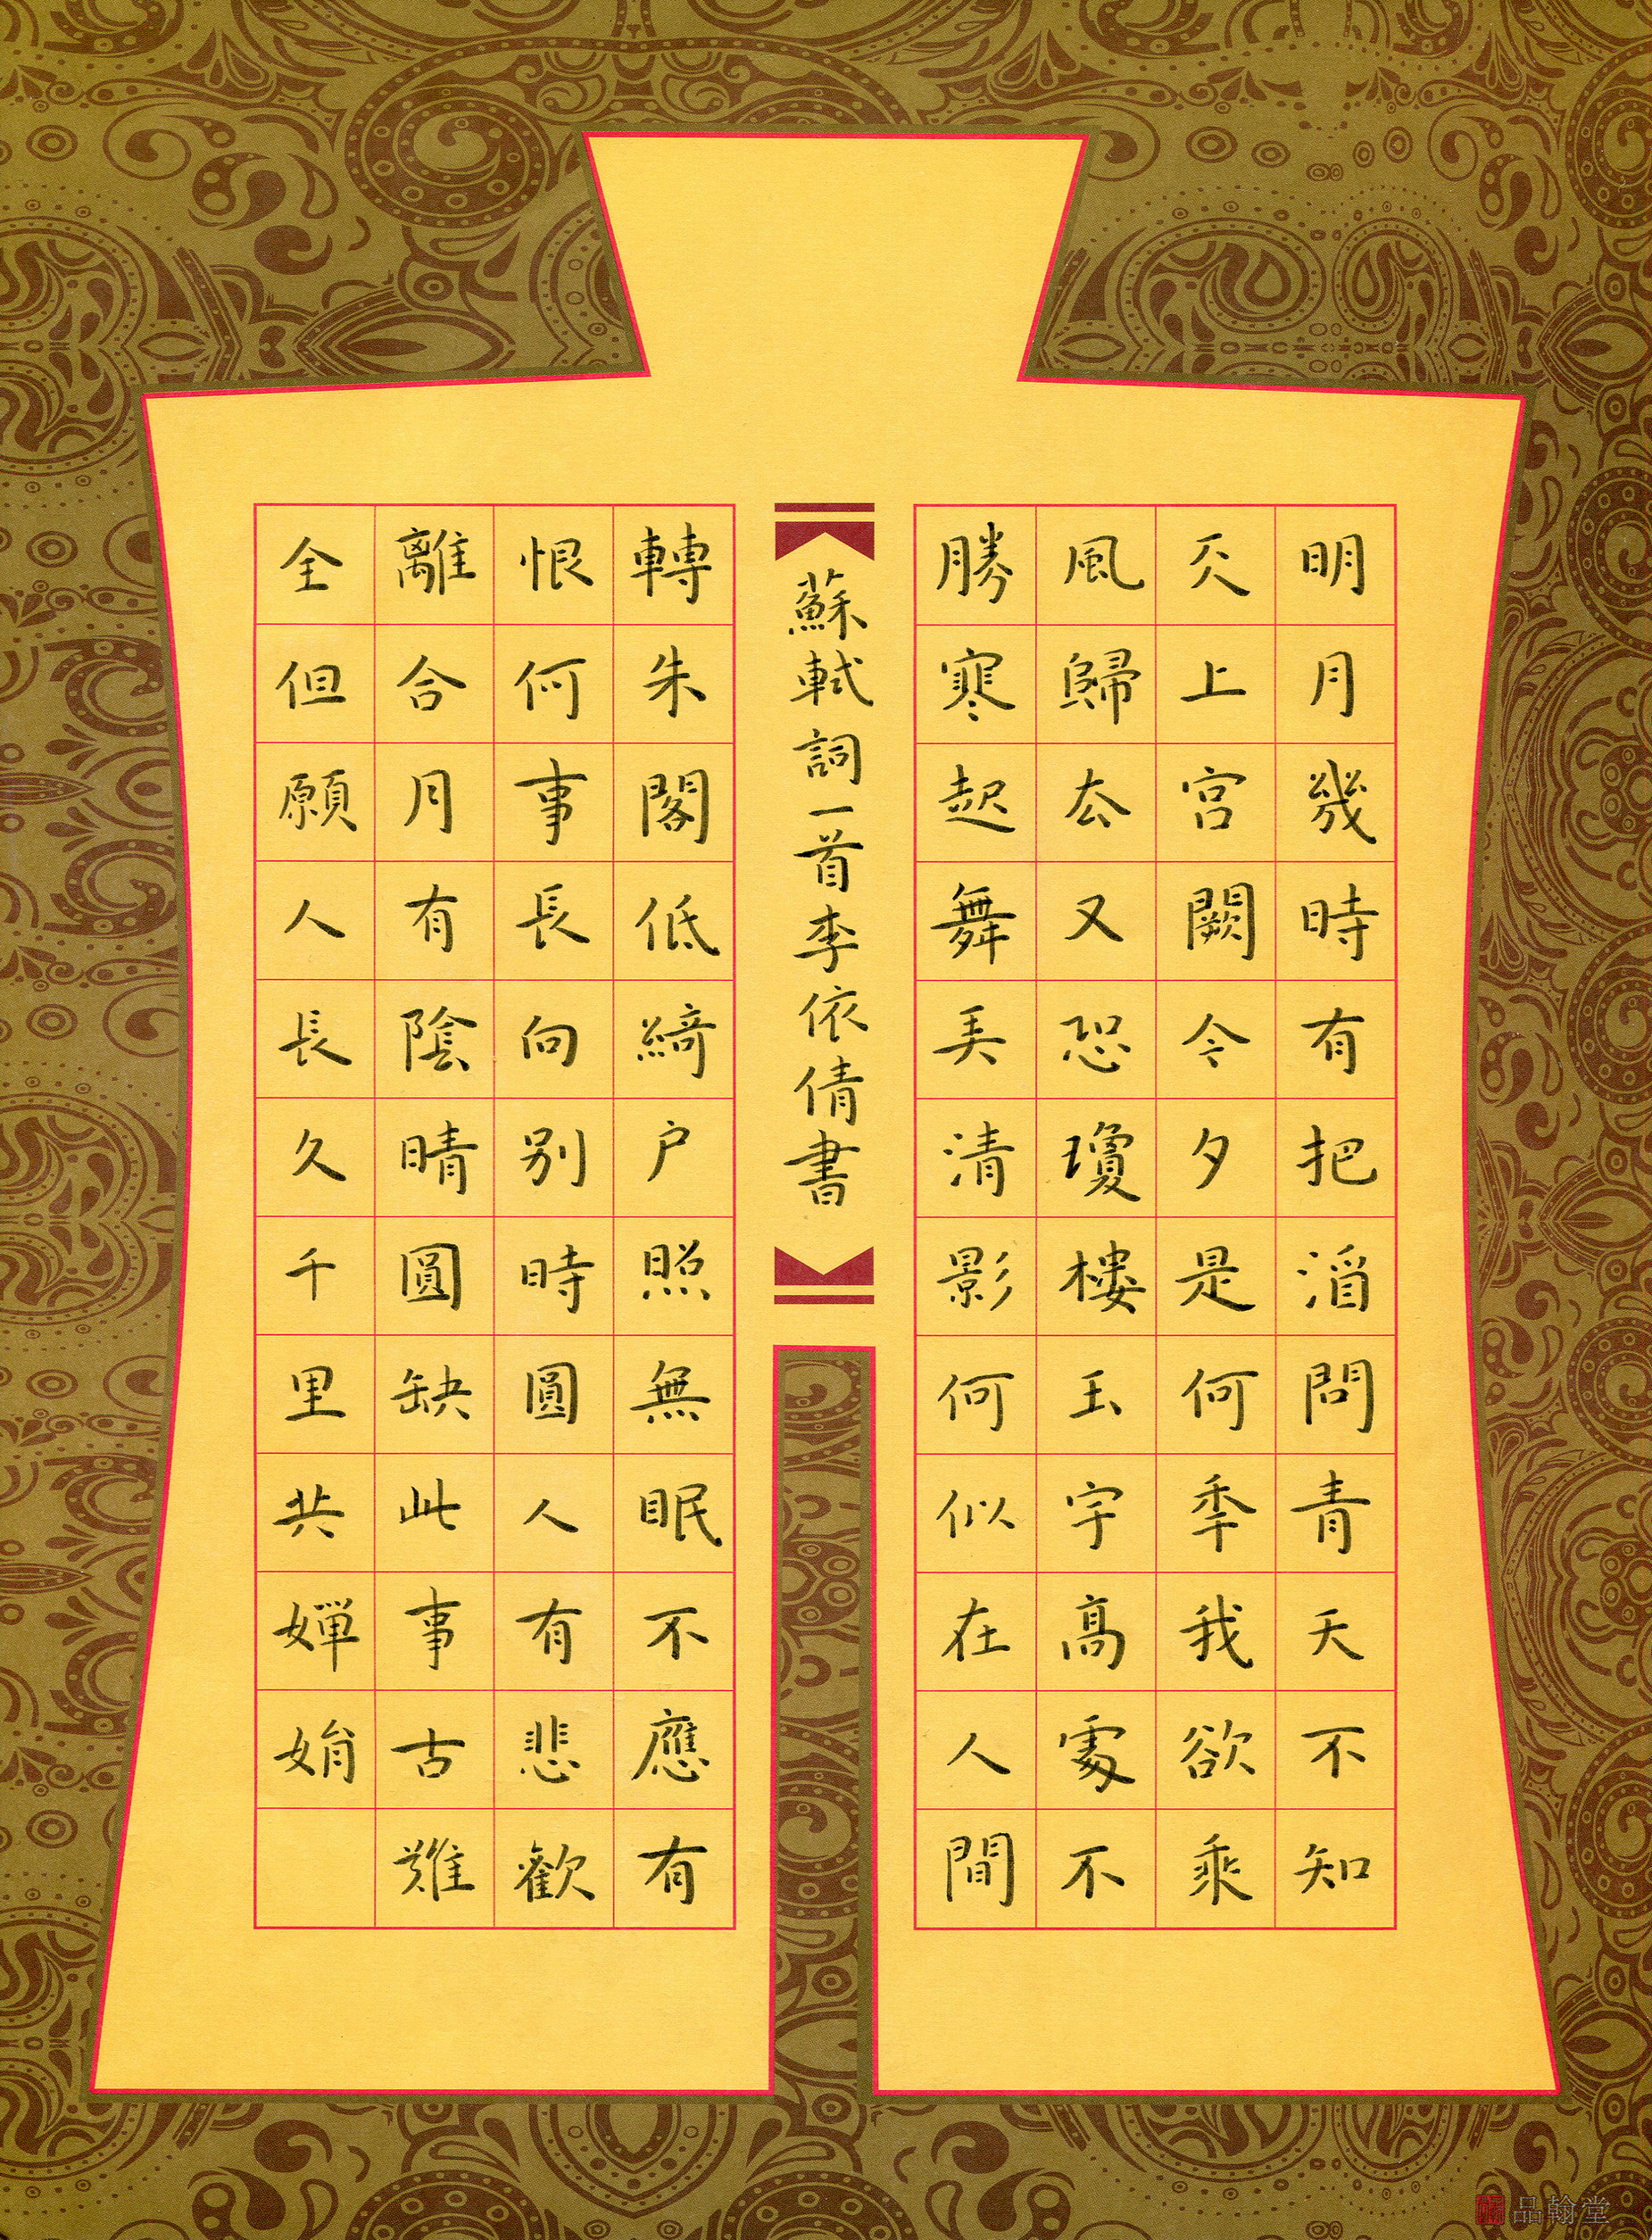 明月幾時有把酒問青天不知
天上宮闕今夕是何秊我欲乘
風歸去又恐瓊樓玉宇高處不
勝寒起舞弄清影何似在人間
蘇軾詞一首李依倩書
轉朱閣低綺戶照無眠不應有
恨何事長向別時圓人有悲歡
離合月有陰晴圓缺此事古難
全但願人長久千里共嬋娟
品翰堂